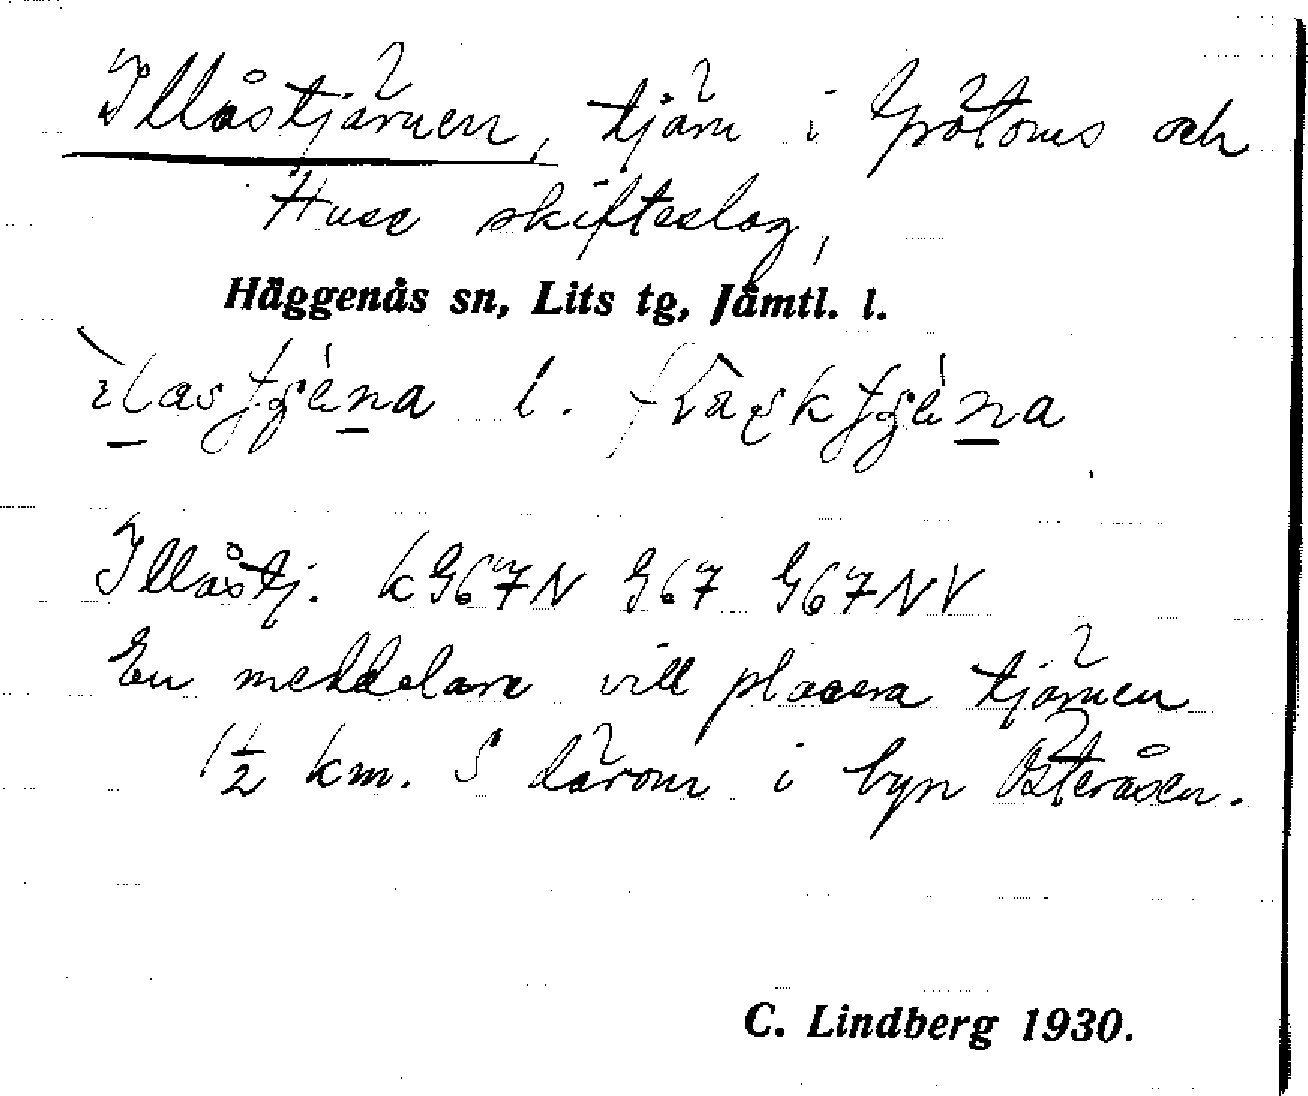 Illåstjärnen, tjärn i Grötoms och
Huse skifteslag,
Häggenås sn, Lits tg, Jämtl. l.
l.
Illåstj. k G67N G67 G67NV
En meddelare vill placera tjärnen
1½ km. S därom i byn Österåsen.
C. Lindberg 1930.